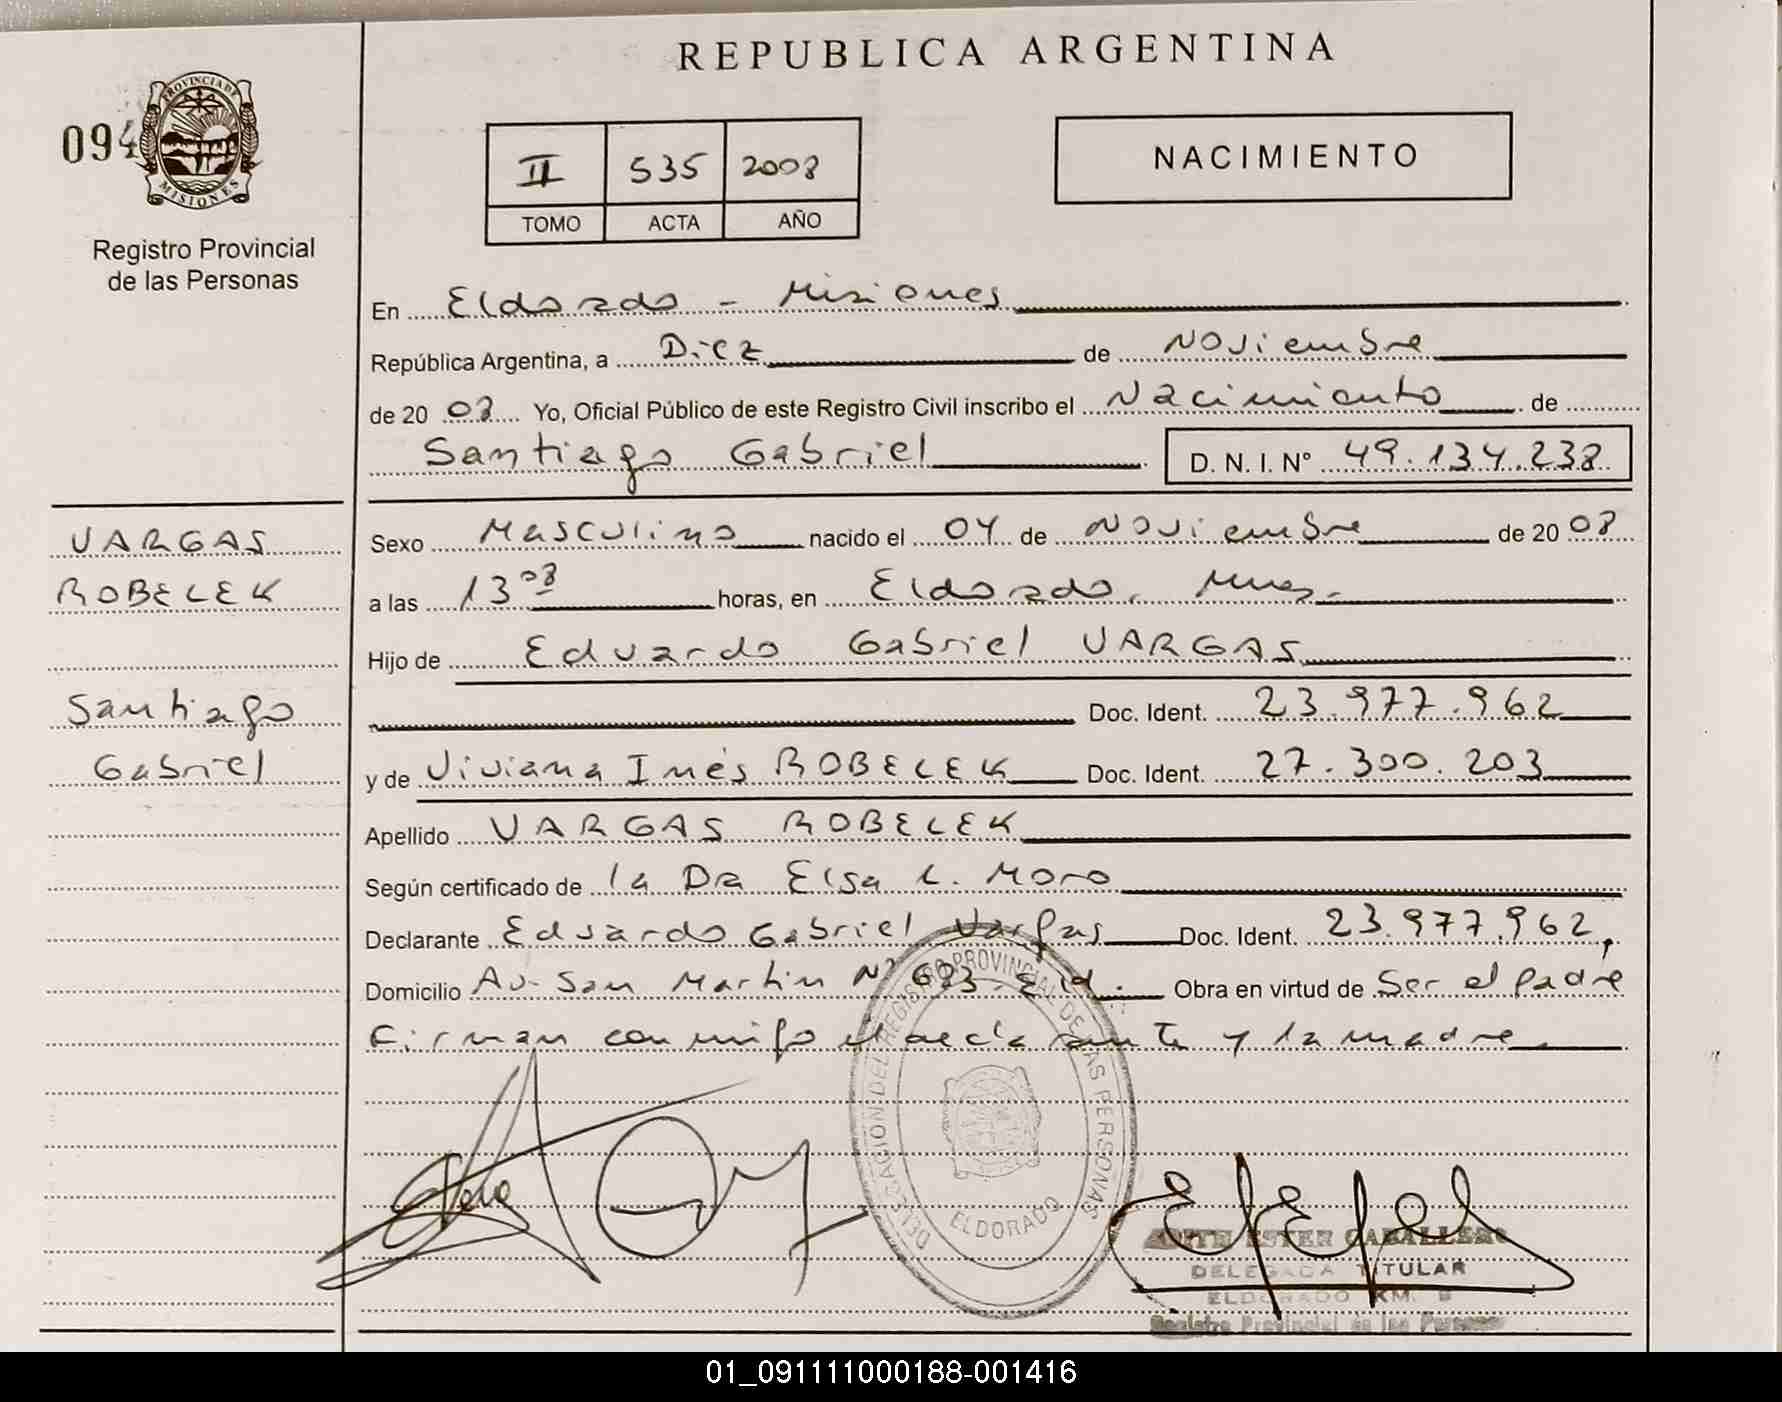 REPUBLICA ARGENTINA
094
PROVINCIA DE
MISIONES
Registro Provincial
de las Personas
II 535 2008
TOMO ACTA AÑO
NACIMIENTO
En Eldorado - Misiones
República Argentina, a Diez de Noviembre
de 20 08 Yo, Oficial Público de este Registro Civil inscribo el Nacimiento de
Santiago Gabriel D. N. I. N° 49.134.238
VARGAS
ROBELEK
Santiago
Gabriel
Sexo Masculino nacido el 04 de Noviembre de 20 08
a las 13 08 horas, en Eldorado, Mnes.
Hijo de Eduardo Gabriel VARGAS
Doc. Ident. 23.977.962
y de Viviana Inés ROBELEK Doc. Ident. 27.300.203
Apellido VARGAS ROBELEK
Según certificado de la Dra Elsa L. Moro
Declarante Eduardo Gabriel Vargas Doc. Ident. 23.977.962,
Domicilio Av. San Martin N° 603. Eld. Obra en virtud de Ser el padre
Firman conmigo el declarante y la madre.
DELEGACION DEL REGISTRO PROVINCIAL DE LAS PERSONAS
ELDORADO
EDITH ESTER CABALLERO
DELEGADA TITULAR
ELDORADO KM. 9
Registro Provincial de las Personas
01_091111000188-001416